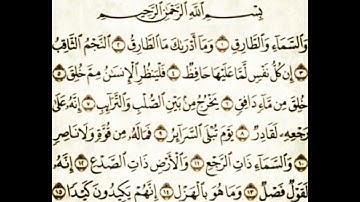 بِسْمِ اللَّهِ الرَّحْمَٰنِ الرَّحِيمِ
وَالسَّمَاءِ وَالطَّارِقِ ۝١ وَمَا أَدْرَىٰكَ مَا الطَّارِقُ ۝٢ النَّجْمُ الثَّاقِبُ
۝٣ إِن كُلُّ نَفْسٍ لَّمَّا عَلَيْهَا حَافِظٌ ۝٤ فَلْيَنظُرِ الْإِنسَانُ مِمَّ خُلِقَ ۝٥
خُلِقَ مِن مَّاءٍ دَافِقٍ ۝٦ يَخْرُجُ مِن بَيْنِ الصُّلْبِ وَالتَّرَائِبِ ۝٧ إِنَّهُ عَلَىٰ
رَجْعِهِ لَقَادِرٌ ۝٨ يَوْمَ تُبْلَى السَّرَائِرُ ۝٩ فَمَا لَهُ مِن قُوَّةٍ وَلَا نَاصِرٍ
۝١٠ وَالسَّمَاءِ ذَاتِ الرَّجْعِ ۝١١ وَالْأَرْضِ ذَاتِ الصَّدْعِ ۝١٢ إِنَّهُ
لَقَوْلٌ فَصْلٌ ۝١٣ وَمَا هُوَ بِالْهَزْلِ ۝١٤ إِنَّهُمْ يَكِيدُونَ كَيْدًا ۝١٥